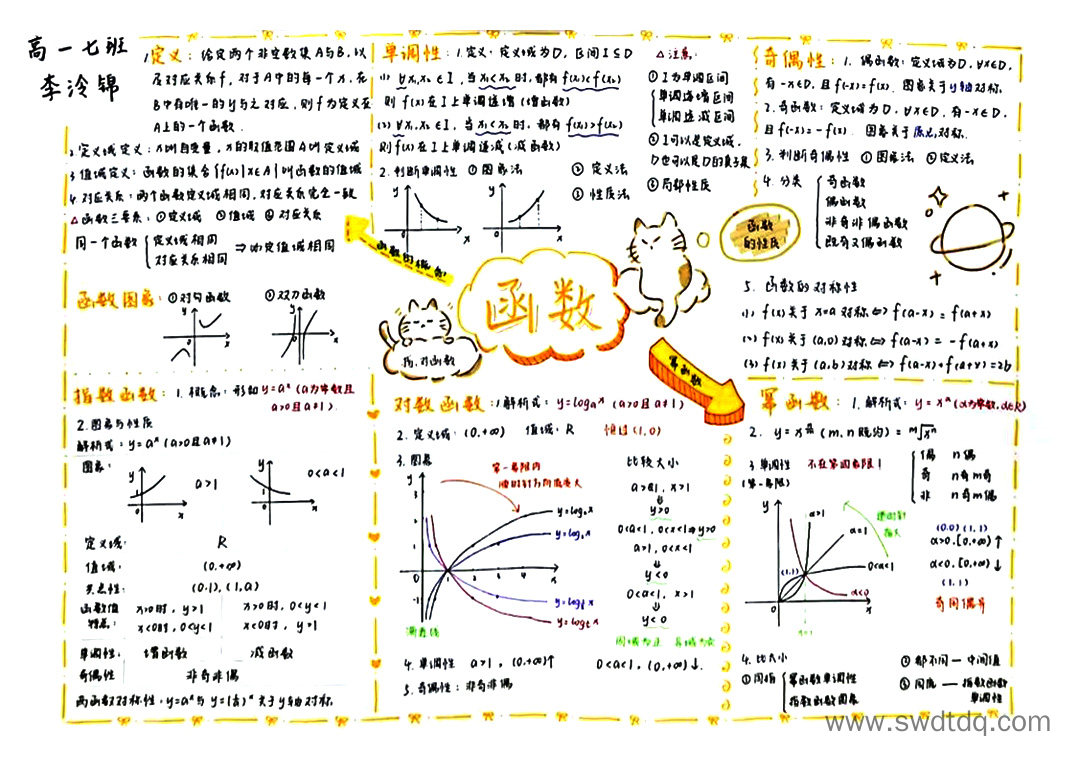 高一七班
李泠锦
1.定义：给定两个非空数集A与B，以
及对应关系f，对于A中的每一个x，在
B中有唯一的y与之对应，则f为定义在
A上的一个函数.
2.定义域定义：x叫自变量，x的取值范围A叫定义域
3.值域定义：函数的集合{f(x)|x∈A}叫函数的值域
4.对应关系：两个函数定义域相同，对应关系完全一致
△函数三要素：①定义域 ②值域 ③对应关系
同一个函数 定义域相同
对应关系相同 ⇒ 值域相同
函数图象：①对勾函数 ②双刀函数
y x 0
y x 0
单调性：1.定义：定义域为D，区间I⊆D
(1) ∀x₁,x₂∈I，当x₁<x₂时，都有f(x₁)<f(x₂)
则f(x)在I上单调递增（增函数）
(2) ∀x₁,x₂∈I，当x₁<x₂时，都有f(x₁)>f(x₂)
则f(x)在I上单调递减（减函数）
2.判断单调性 ①图象法 ②定义法
③性质法
△注意：
①I为单调区间
单调递增区间
单调递减区间
②I可以是定义域，
D也可以是D的真子集
③局部性质
奇偶性：1.偶函数：定义域为D，∀x∈D，
有-x∈D，且f(-x)=f(x) 图象关于y轴对称.
2.奇函数：定义域为D，∀x∈D，有-x∈D，
且f(-x)=-f(x) 图象关于原点对称.
3.判断奇偶性 ①图象法 ②定义法
4.分类 奇函数
偶函数
非奇非偶函数
既奇又偶函数
5.函数的对称性
(1) f(x)关于x=a对称⇔f(a-x)=f(a+x)
(2) f(x)关于(a,0)对称⇔f(a-x)=-f(a+x)
(3) f(x)关于(a,b)对称⇔f(a-x)+f(a+x)=2b
函数的概念
函数
函数
的性质
指、对函数
幂函数
指数函数：1.概念：形如y=aˣ(a为常数且
a>0且a≠1).
2.图象与性质
解析式：y=aˣ(a>0且a≠1)
图象： a>1 0<a<1
定义域： R
值域： (0,+∞)
(0,1),(1,a)
函数值 x>0时，y>1 x>0时，0<y<1
特点： x<0时，0<y<1 x<0时，y>1
单调性： 增函数 减函数
奇偶性 非奇非偶
两函数对称性：y=aˣ与y=(1/a)ˣ关于y轴对称
对数函数：1.解析式：y=logₐx(a>0且a≠1)
2.定义域：(0,+∞) 值域：R 恒过(1,0)
3.图象 第一象限内
顺时针方向底变大
比较大小
a>1,x>1
y>0
0<a<1,0<x<1⇒y>0
a>1,0<x<1
y<0
0<a<1,x>1
y<0
4.单调性 a>1，(0,+∞)↑ 0<a<1，(0,+∞)↓.
5.奇偶性：非奇非偶
幂函数：1.解析式：y=xᵅ(α为常数,α∈R)
3.单调性 不在第四象限！
(第一象限)
偶 n偶
奇 n奇m奇
非 n奇m偶
逆时针
指大
α>1
α=1
0<α<1
α<0
(1,1)
x=1
(0,0)(1,1)
α>0,[0,+∞)↑
α<0,(0,+∞)↓
(1,1)
4.比大小
①同指 幂函数单调性
指数函数图象
②都不同—中间值
③同底—指数函数
单调性
www.swdtdq.com